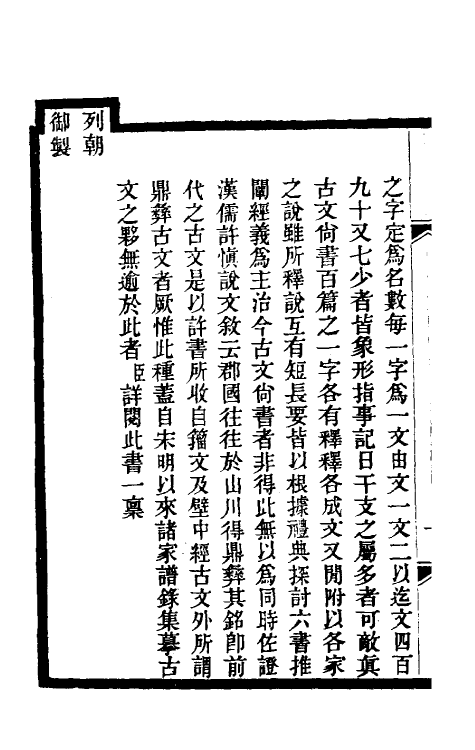 之字定爲名數每一字爲一文由文一文二以迄文四百
九十又七少者皆象形指事記日干支之屬多者可敵眞
古文尙書百篇之一字各有釋釋各成文又閒附以各家
之說雖所釋說互有短長要皆以根據禮典探討六書推
闡經義爲主治今古文尙書者非得此無以爲同時佐證
漢儒許愼說文敘云郡國往往於山川得鼎彝其銘卽前
代之古文是以許書所收自籀文及壁中經古文外所謂
鼎彝古文者厥惟此種蓋自宋明以來諸家譜錄集摹古
文之夥無逾於此者臣詳閱此書一稟
列朝
御製